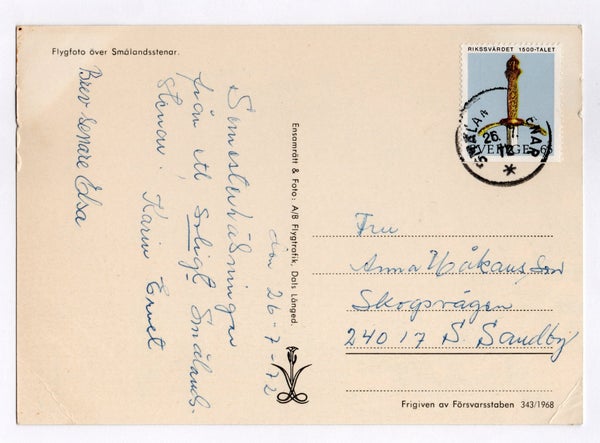 Flygfoto över Smålandsstenar.
RIKSSVÄRDET 1500-TALET
SVERIGE 65
SMÅLAN ENAR
26. 7.
72
den 26-7-72
Semesterhälsningar
från ett soligt Smålands-
stenar. Karin Ernst
Brev senare Edsa
Ensamrätt & Foto: A/B Flygtrafik, Dals Långed.
Fru
Anna Håkansson
Skogsvägen
240 17 S. Sandby
Frigiven av Försvarsstaben 343/1968